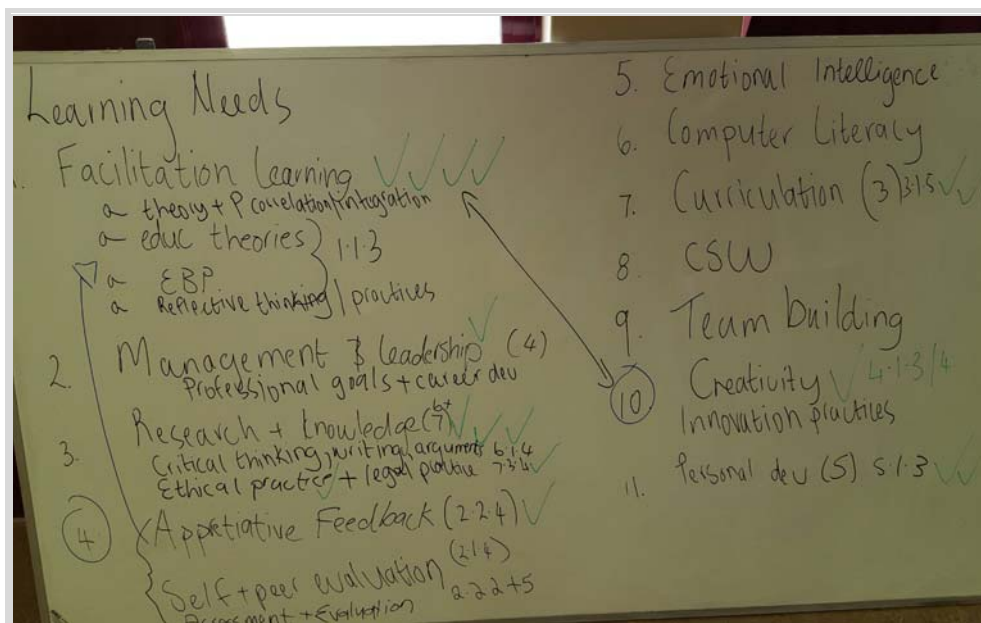 Learning Needs
1. Facilitation Learning ✓✓✓✓
theory + P correlation/integration
educ theories } 1.1.3
EBP
Reflective thinking / practices
2. Management & leadership ✓ (4)
Professional goals + career dev
3. Research + knowledge (7) ✓✓✓
Critical thinking, writing, arguments 6.1.4
Ethical practice + legal practice 7.3.4 ✓
4. Appretiative Feedback (2.2.4) ✓
Self + peer evaluation (2.1.4)
2.2.2+5
Assessment + Evaluation
5. Emotional Intelligence
6. Computer Literacy
7. Curriculation (3) 3.1.5 ✓✓
8. CSW
9. Team building
10. Creativity ✓ 4.1.3/4
Innovation practices
11. Personal dev (5) 5.1.3 ✓✓